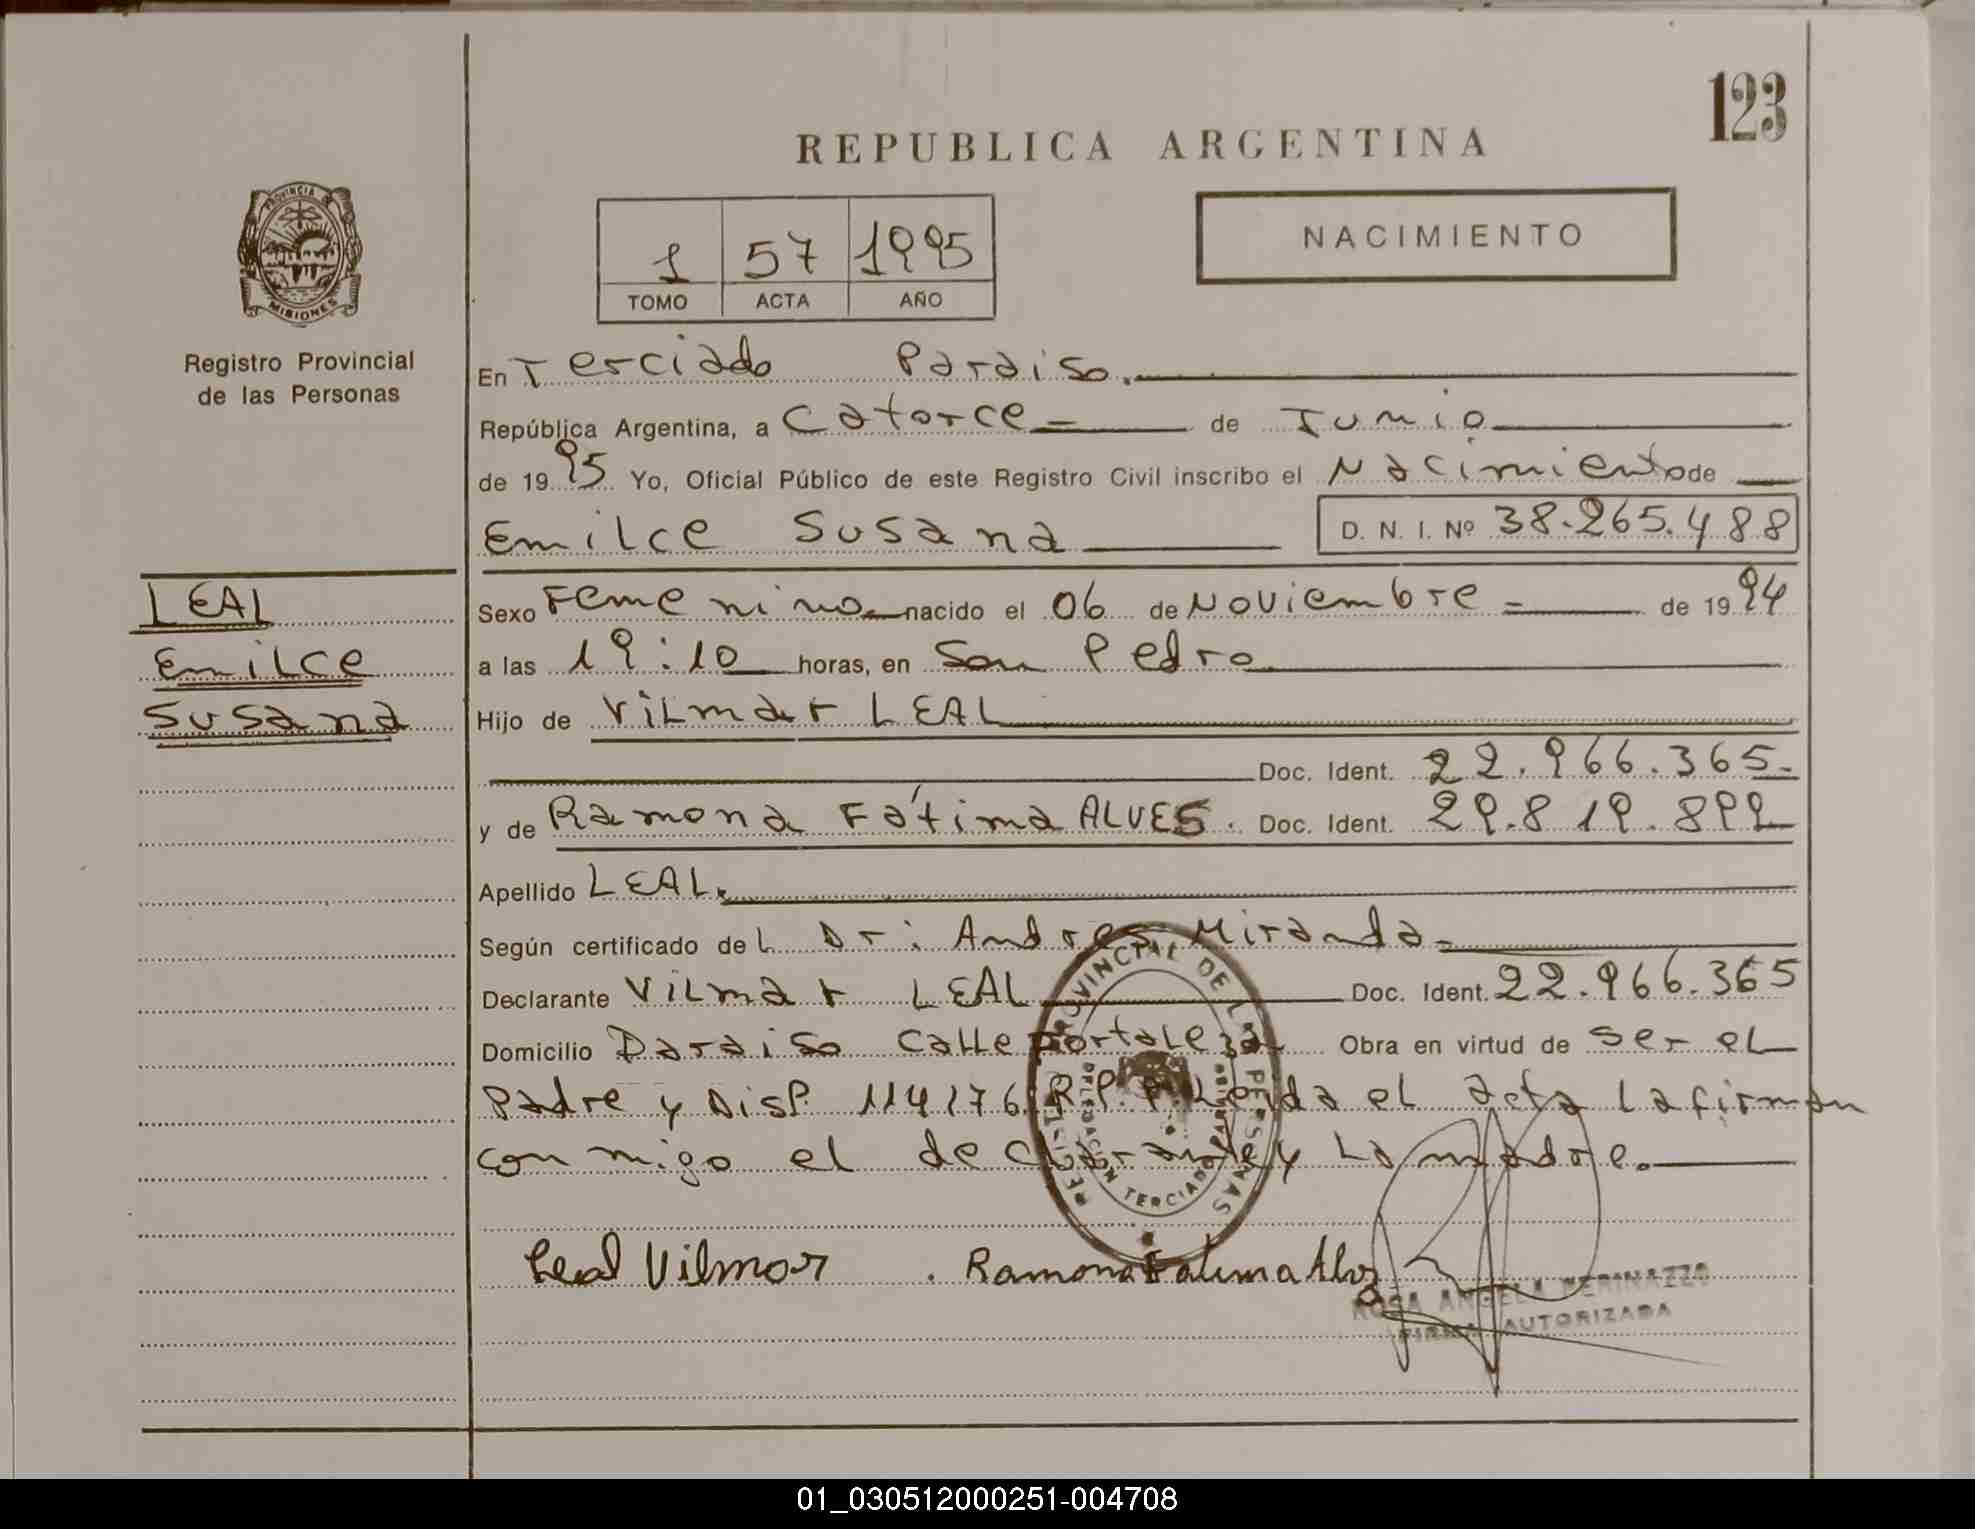 123
REPUBLICA ARGENTINA
PROVINCIA DE
MISIONES
Registro Provincial
de las Personas
1 57 1995
TOMO ACTA AÑO
NACIMIENTO
En Terciado Paraiso.
República Argentina, a Catorce = de Junio
de 1995 Yo, Oficial Público de este Registro Civil inscribo el Nacimiento de
Emilce Susana D. N. I. Nº 38.265.488
LEAL
Emilce
Susana
Sexo Femenino nacido el 06 de Noviembre = de 1994
a las 19:10 horas, en San Pedro
Hijo de Vilmar LEAL
Doc. Ident. 22.966.365.
y de Ramona Fátima ALVES. Doc. Ident. 29.819.892
Apellido LEAL.
Según certificado del Dr: Andres Miranda
Declarante Vilmar LEAL Doc. Ident. 22.966.365
Domicilio Paraiso Calle Fortaleza Obra en virtud de ser el
Padre y Disp. 114/76 R.P.P. Leida el acta la firman
con migo el declarante y la madre.
REGISTRO PROVINCIAL DE LAS PERSONAS
DELEGACION TERCIADO PARAISO
Leal Vilmar . Ramona Fatima Alves
ROSA ANGELA
FIRMA AUTORIZADA
01_030512000251-004708